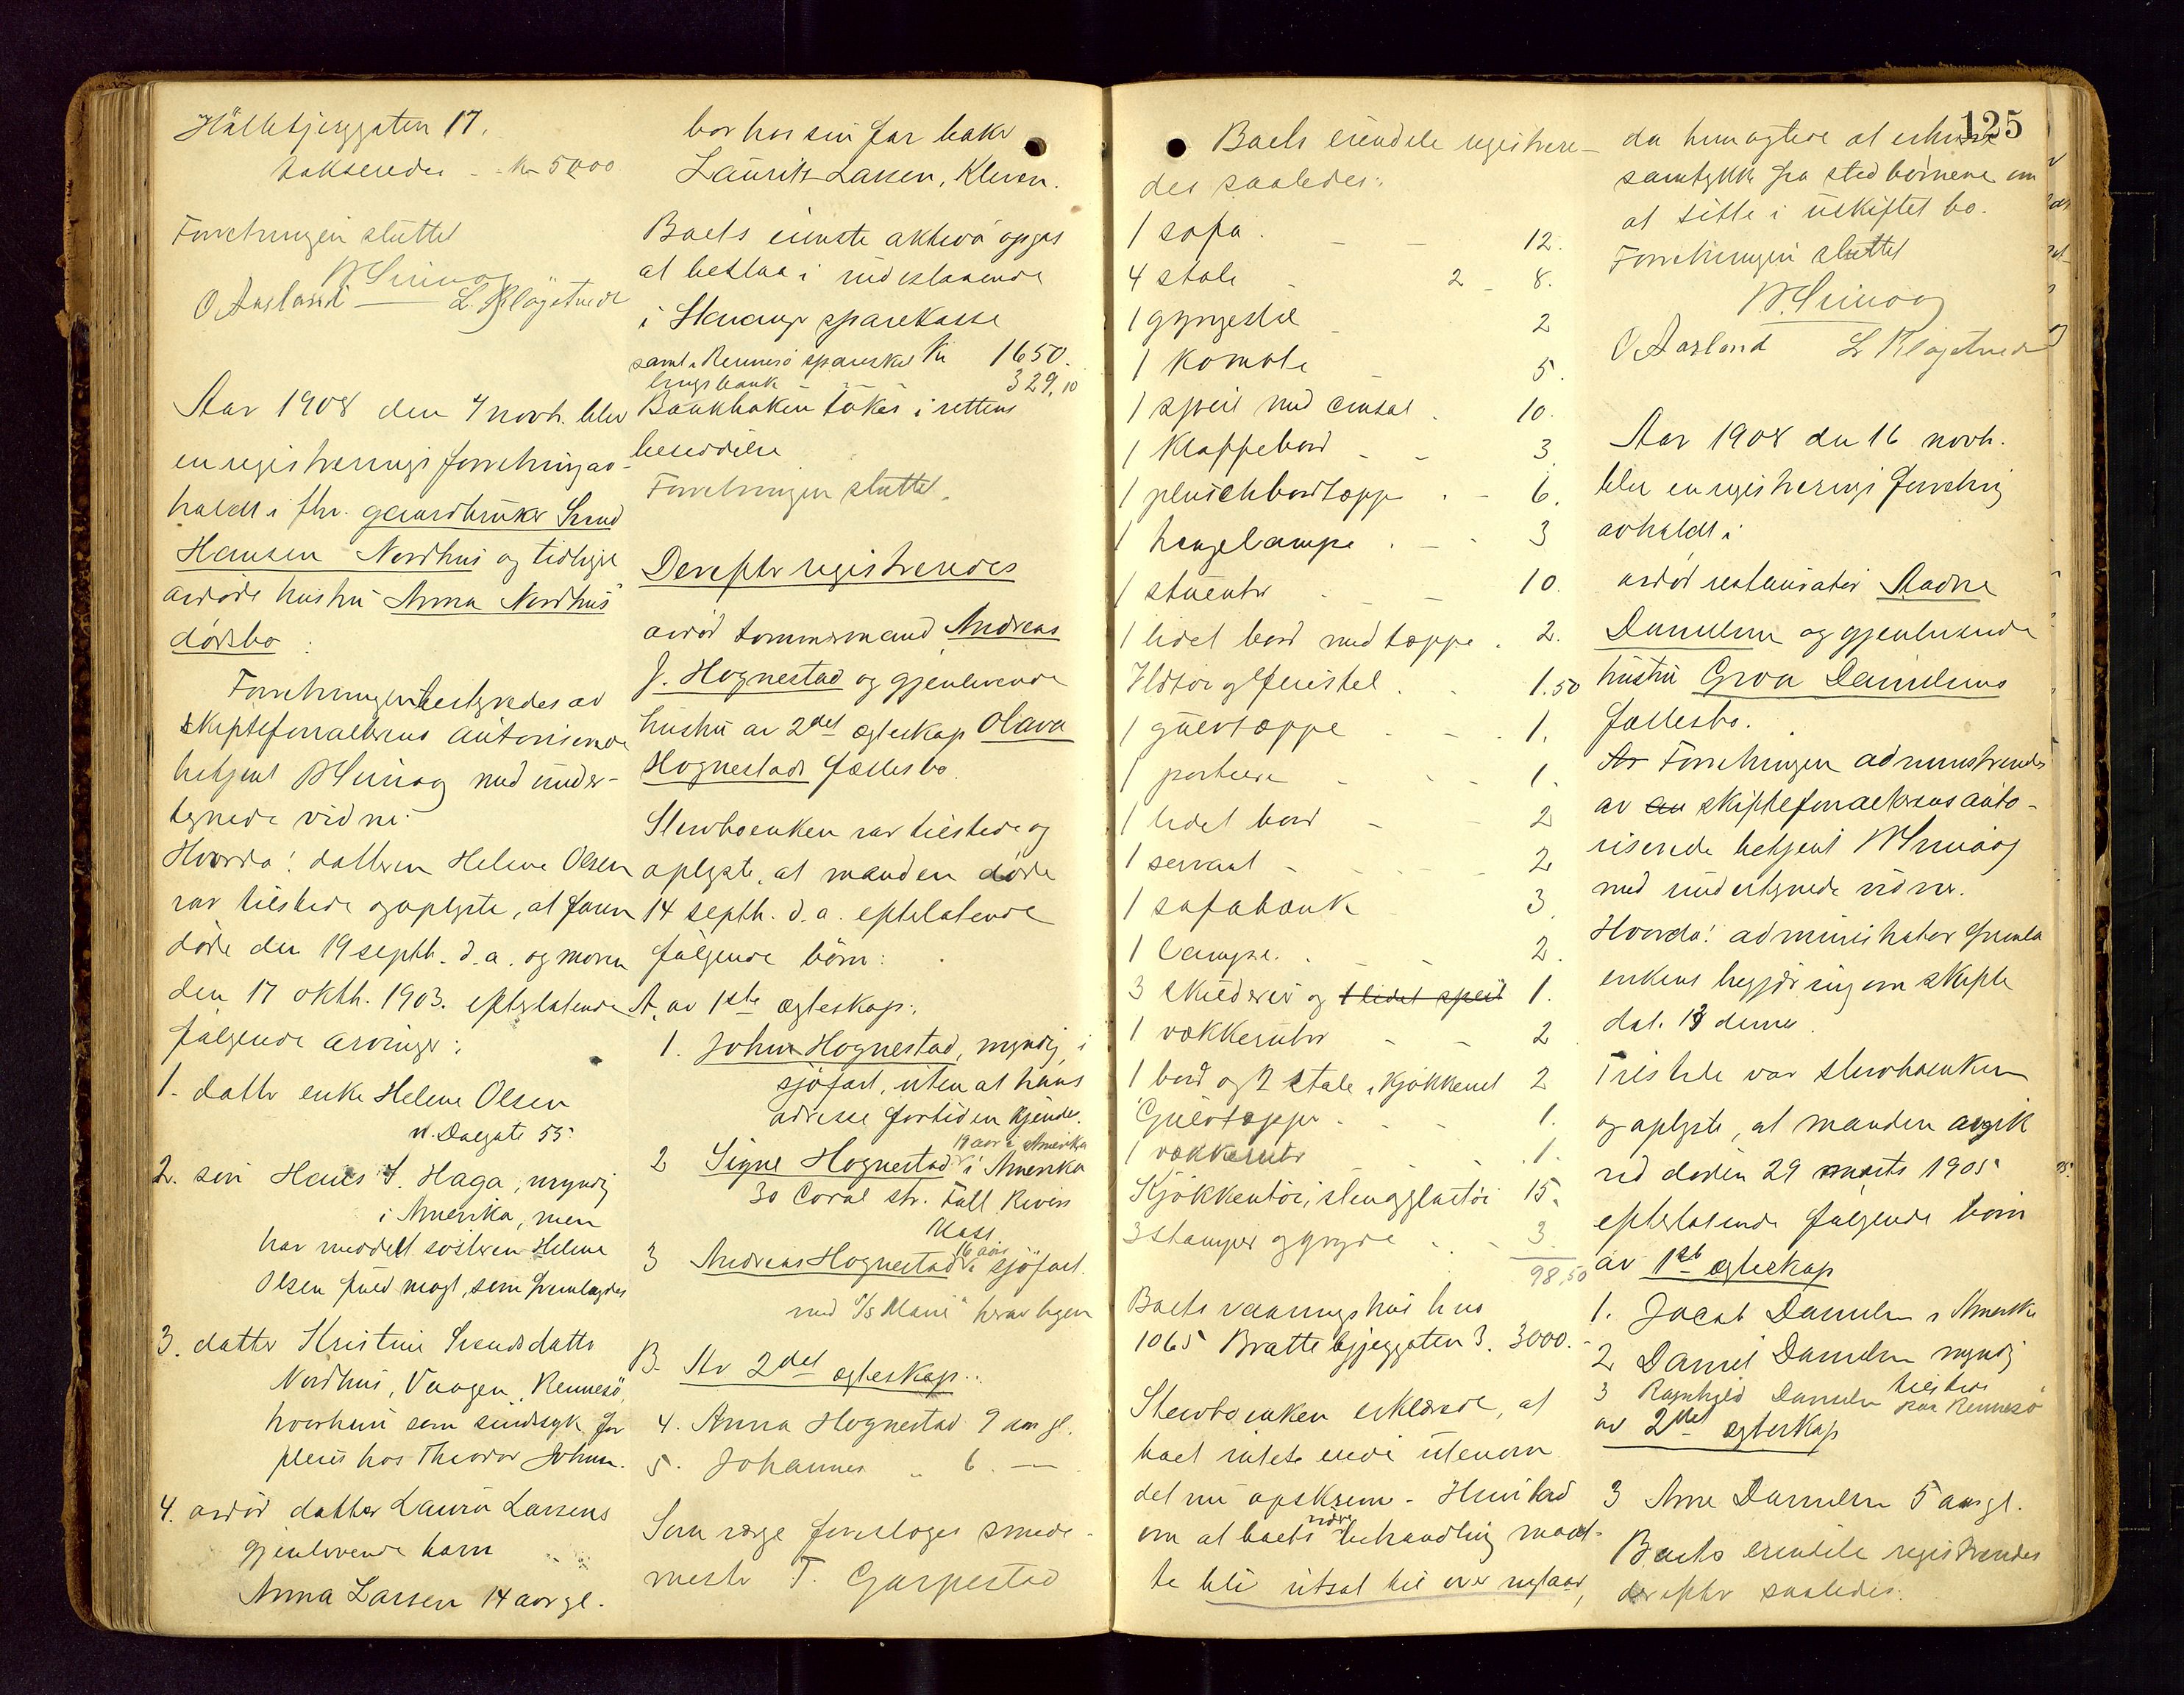 Hållebjerggaten 17.
takseredes - kr 5000
Forretningen sluttet
O. Aasland L. Kløgetvedt
Aar 1908 den 7 novb. blev
en registreringsforretning av-
holdt i fhv. gaardbruker Svend
Hansen Nordhus og tidligere
avdøde hustru Anna Nordhus
dødsbo :
Forretningen bestyredes av
skifteforvalterens autoriserede
betjent med under-
tegnede vidne.
Hvorda! datteren Helene Olsen
var tilstede og oplyste, at faren
døde den 19 septb. d.a. og moren
den 17 oktb. 1903. efterlatende
følgende arvinger :
1. datter enke Helene Olsen
n. Dalgate 55.
2. søn Hans S. Haga, myndig
i Amerika, men
har meddelt søsteren Helene
Olsen fuldmagt, som fremlagdes
3. datter Kristine Svendsdatter
Nordhus, Vaagen, Rennesø,
hvorhun som sindssyk har
pleies hos Theodor Johnsen.
4. avdød datter Laura Larsens
gjenlevende barn
Anna Larsen 14 aar gl.
bor hos sin far baker
Laurits Larsen, Kleven.
Boets eneste aktiva opgas
at bestaa i indestaaende
i Stavanger sparekasse
samt i Rennesø spareskil- kr 1650.
lingsbank - 329,10
Bankboken tokes i rettens
besiddelse
Forretningen sluttet.
Derefter registreredes
avdød tømmermand Andreas
J. Hognestad og gjenlevende
hustru av 2det egteskap Olava
Hognestads fællesbo.
Stervboenken var tilstede og
oplyste, at manden døde
14 septb. d.a. efterlatende
følgende børn :
A. av 1ste egteskap :
1. John Hognestad, myndig, i
sjøfart, uten at hans
adresse fortiden kjendes.
19 aar i Amerika
2 Signe Hognestad i Amerika
30 Coral str. Fall Rivers
Mass
16 aar
3 Andreas Hognestad i sjøfart
med S/S "Marie" herav byen
B. Av 2det egteskap..
4. Anna Hognestad 9 aar gl.
5. Johannes " 6 —
Som verge foresloges smede-
mester T. Garpestad
125
Boets eiendele registrere-
des saaledes:
1 sofa - - 12.
4 stole - 2 - 8.
1 gyngestol - 2
1 komode - 5.
1 speil med consol . 10.
1 klappebord - - 3.
1 pluschbordteppe . - 6.
1 hengelampe . - - 3
1 stueuhr - - 10.
1 lidet bord med teppe . 2.
Ildtøi og feiestel . . 1.50
1 gulvteppe . - . 1.
1 portiere - - - 1.
1 lidet bord - - 2
1 servant - - - 2
1 sofabænk - 3.
1 lampe . . - - 2.
3 skilderier og 1 lidet speil 1.
1 vækkeruhr - - 2
1 bord og 2 stole i kjøkkenet 2
Gulvtepper . - - 1.
1 vækkeruhr - - . 1.
Kjøkkentøi, stengglastøi 15.
3 stamper og gryde . - 3.
98,50
Boets vaaningshus br no
1065 Brattebjerggaten 3. 3000.-
Stervboenken erklærede, at
boet intet eiede utenom
det nu opskrevne. - Hun bad
om at boets videre behandling maat-
te bli utsat til over nytaar,
da hun agtede at erhverve
samtykke fra stedbørnene om
at sitte i uskiftet bo.
Forretningen sluttet
O. Aasland L. Kløgetvedt
Aar 1908 den 16 novb.
blev en registreringsforretning
avholdt i
avdød restauratør Aadne
Danielsen og gjenlevende
hustru Groa Danielsens
fællesbo.
Av Forretningen administreredes
av en skifteforvalterens auto-
riserede betjent
med undertegnede vidner.
Hvorda! administrator fremla
enkens begjæring om skifte
dat. 13 dennes.
Tilstede var stervboenken
og oplyste, at manden avgik
ved døden 29 marts 1905
efterlatende følgende børn
av 1ste egteskap
1. Jacob Danielsen i Amerika
2 Daniel Danielsen myndig
tilstede
3 Ragnhild Danielsen paa Rennesø
av 2det egteskap
3 Arne Danielsen 5 aar gl.
Boets eiendele registreredes
derefter saaledes: